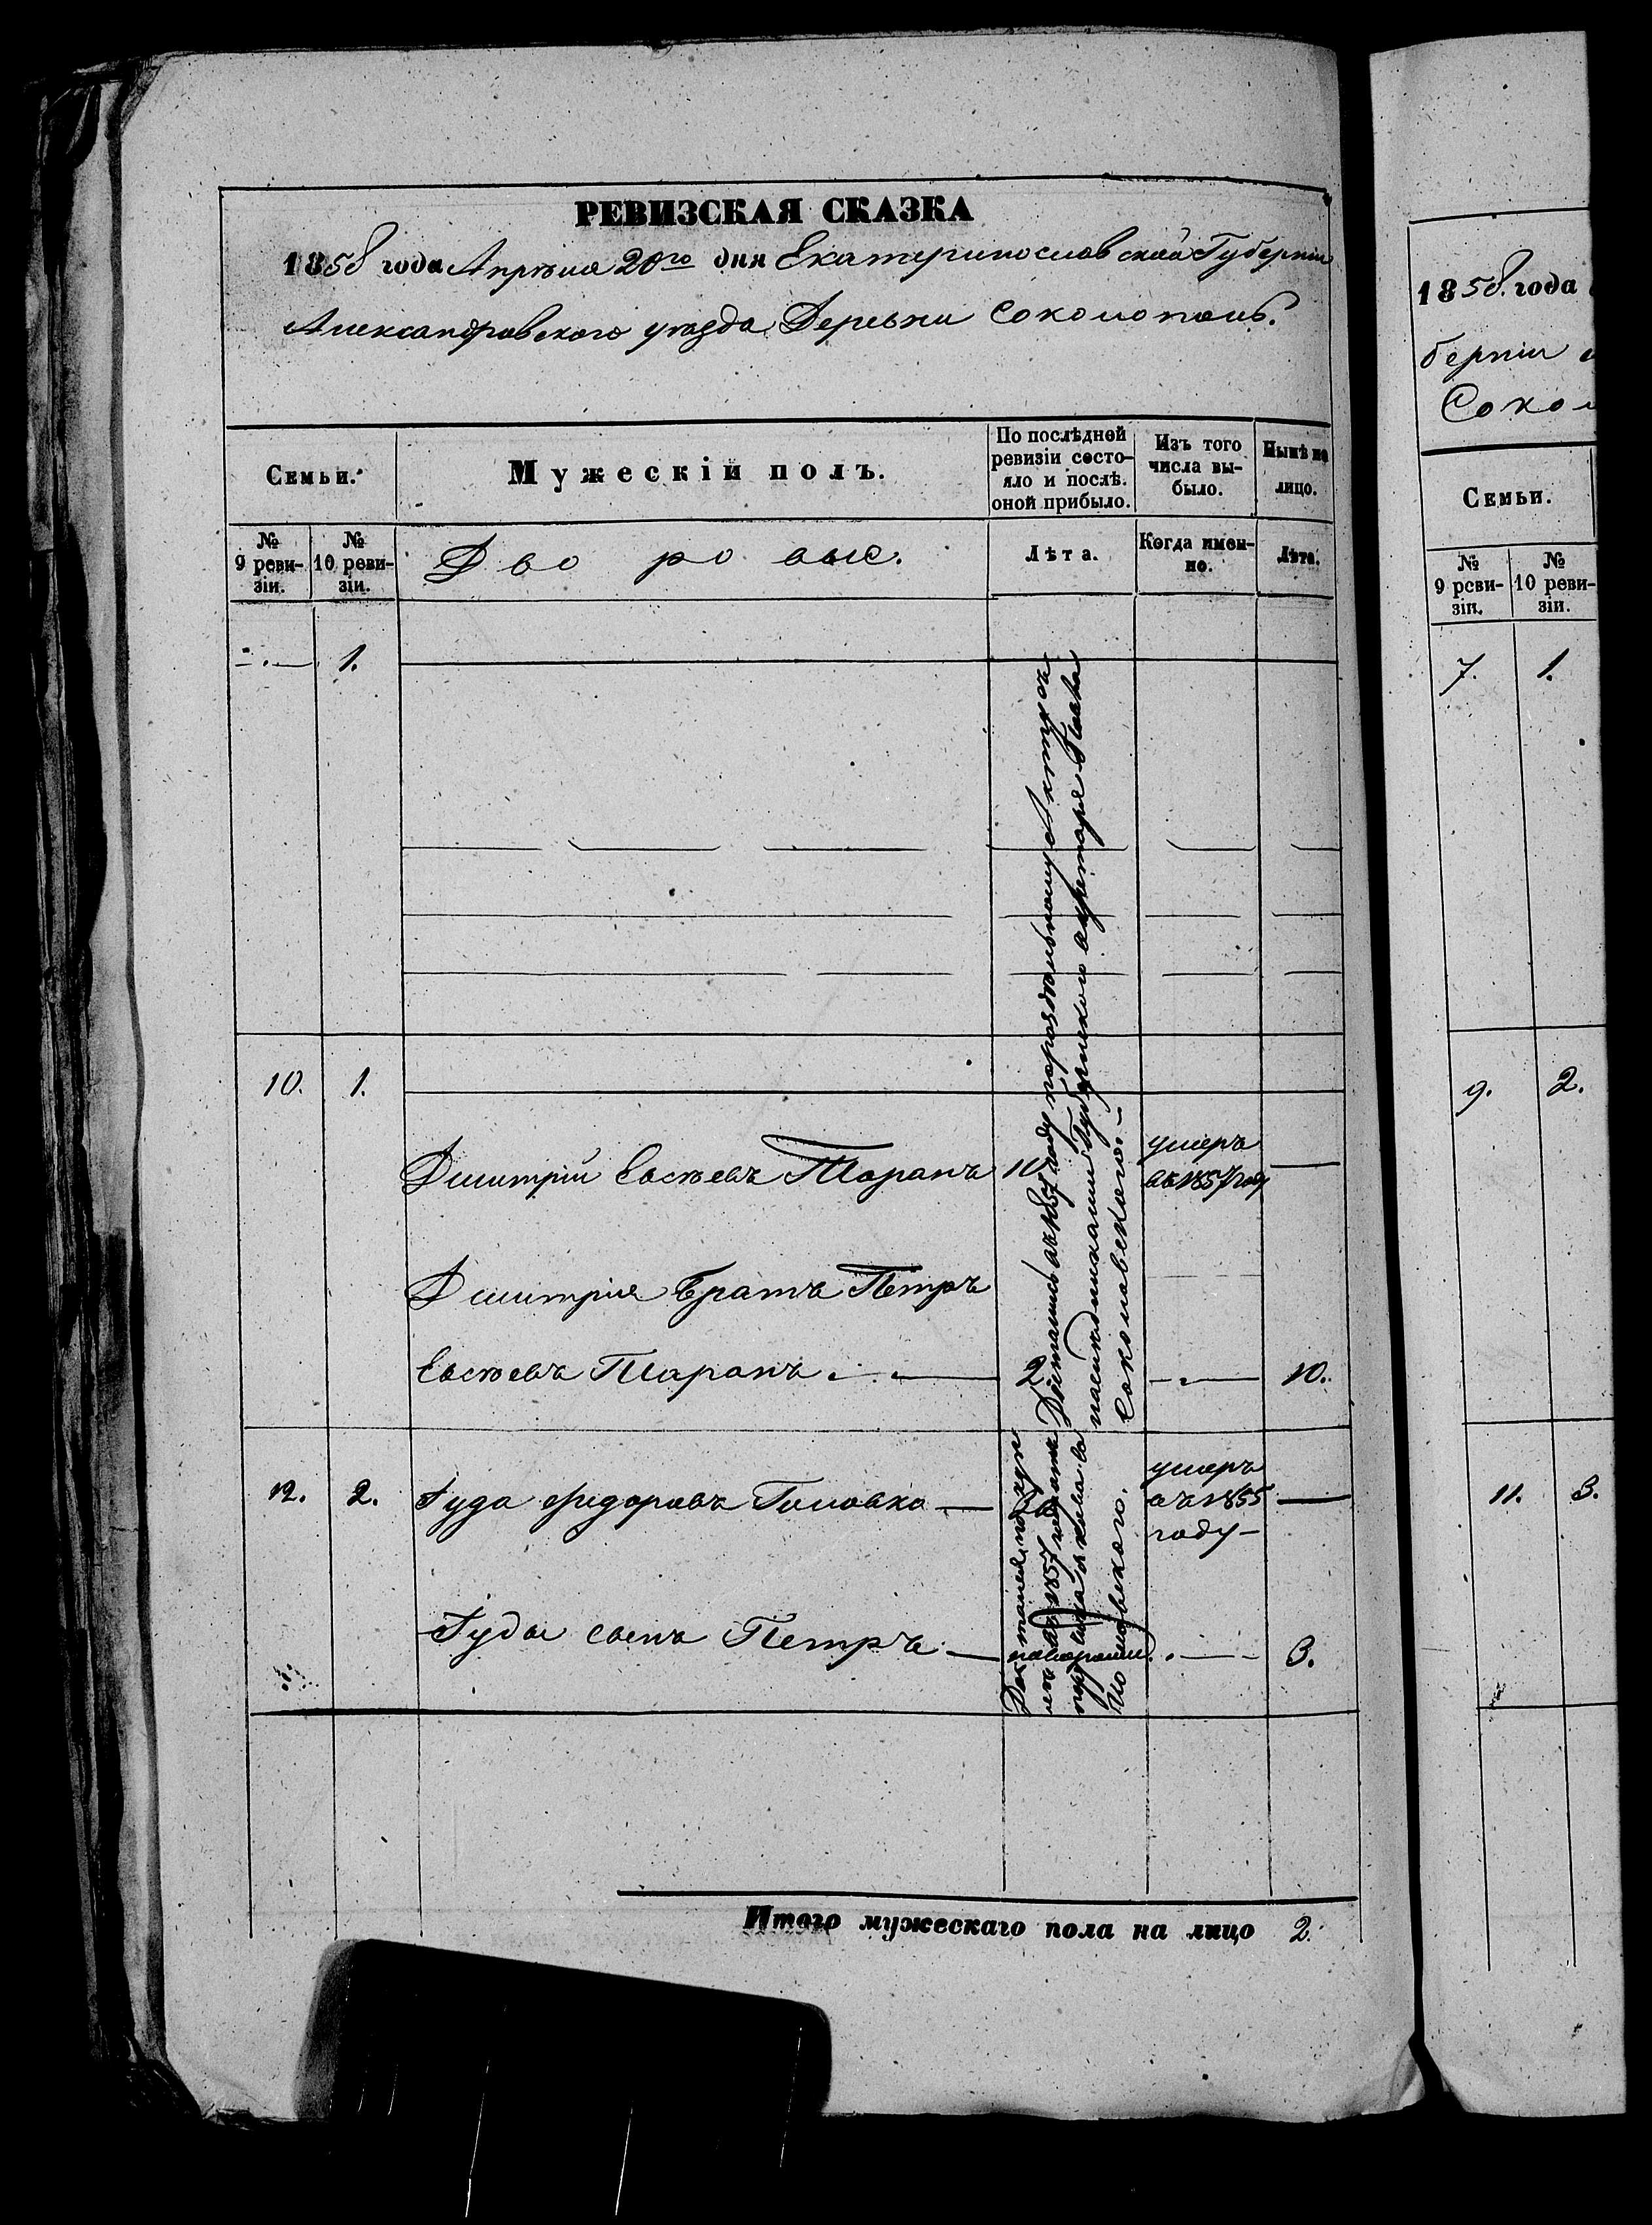 РЕВИЗСКАЯ СКАЗКА
1858 года Апрѣля 20го дня Екатеринославской Губерніи
Александровского уѣзда Деревни Соколополь.
Семьи.
Мужескій полъ.
По послѣдней ревизіи состо-
яло и послѣ. оной прибыло.
Изъ того числа вы-
было.
Нынѣ на лицо.
№ 9 реви-
зіи.
№ 10 реви-
зіи.
Дворовые.
Лѣта.
Когда имен-
но.
Лѣта.
1.
10. 1.
Дмитрій Евсѣевъ Таранъ 10
умеръ
въ 1857 году
Дмитрія братъ Петръ
Евсѣевъ Таранъ 2 10.
12. 2. Іуда Федоровъ Головко
умеръ
въ 1855
году
Іуды сынъ Петръ 3.
Достались въ 1857 году по раздѣльному Акту отъ
наслѣдниками Губернского секретаря Павла
Соколовского.
Итого мужескаго пола на лицо 2.
1858. года
берніи
Сокол
Семьи.
№ 9 реви-
зіи.
№ 10 реви-
зіи.
7. 1.
9. 2.
11. 3.